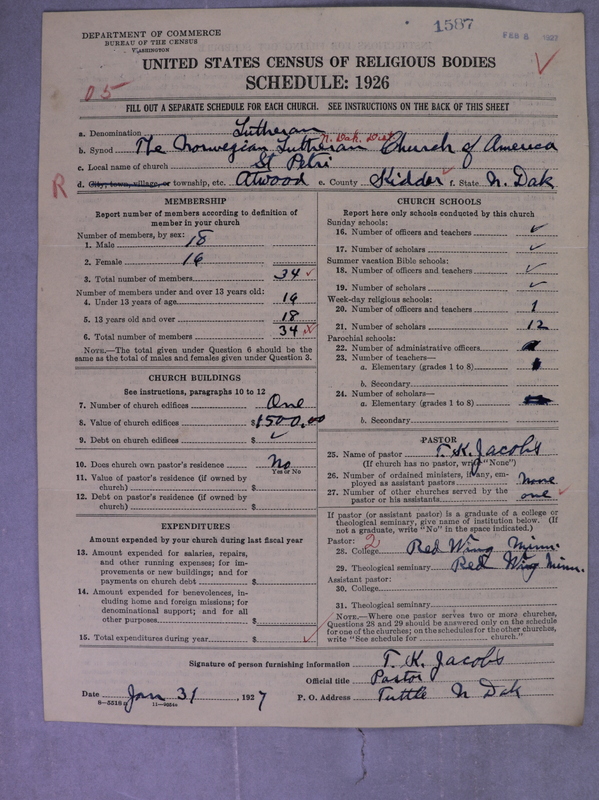 1587
FEB 8 1927
DEPARTMENT OF COMMERCE
BUREAU OF THE CENSUS
WASHINGTON
UNITED STATES CENSUS OF RELIGIOUS BODIES
SCHEDULE: 1926
05
FILL OUT A SEPARATE SCHEDULE FOR EACH CHURCH. SEE INSTRUCTIONS ON THE BACK OF THIS SHEET
a. Denomination Lutheran
N. Dak. Dist
b. Synod The Norwegian Lutheran Church of America
c. Local name of church St Petri
R
d. City, town, village, or township, etc. Atwood e. County Kidder f. State N. Dak
MEMBERSHIP
Report number of members according to definition of
member in your church
Number of members, by sex:
1. Male 18
2. Female 16
3. Total number of members 34
Number of members under and over 13 years old:
4. Under 13 years of age 16
5. 13 years old and over 18
6. Total number of members 34
NOTE.—The total given under Question 6 should be the
same as the total of males and females given under Question 3.
CHURCH BUILDINGS
See instructions, paragraphs 10 to 12
7. Number of church edifices One
8. Value of church edifices $1500.00
9. Debt on church edifices $
10. Does church own pastor's residence No
Yes or No
11. Value of pastor's residence (if owned by
church) $
12. Debt on pastor's residence (if owned by
church) $
EXPENDITURES
Amount expended by your church during last fiscal year
13. Amount expended for salaries, repairs,
and other running expenses; for im-
provements or new buildings; and for
payments on church debt $
14. Amount expended for benevolences, in-
cluding home and foreign missions; for
denominational support; and for all
other purposes $
15. Total expenditures during year $
CHURCH SCHOOLS
Report here only schools conducted by this church
Sunday schools:
16. Number of officers and teachers
17. Number of scholars
Summer vacation Bible schools:
18. Number of officers and teachers
19. Number of scholars
Week-day religious schools:
20. Number of officers and teachers 1
21. Number of scholars 12
Parochial schools:
22. Number of administrative officers
23. Number of teachers—
a. Elementary (grades 1 to 8)
b. Secondary
24. Number of scholars—
a. Elementary (grades 1 to 8)
b. Secondary
PASTOR
25. Name of pastor T. K. Jacobs
(If church has no pastor, write "None")
26. Number of ordained ministers, if any, em-
ployed as assistant pastors None
27. Number of other churches served by the
pastor or his assistants one
If pastor (or assistant pastor) is a graduate of a college or
theological seminary, give name of institution below. (If
not a graduate, write "No" in the space indicated.)
Pastor: 2
28. College Red Wing Minn.
29. Theological seminary Red Wing Minn.
Assistant pastor:
30. College
31. Theological seminary
NOTE.—Where one pastor serves two or more churches,
Questions 28 and 29 should be answered only on the schedule
for one of the churches; on the schedules for the other churches,
write "See schedule for church."
Signature of person furnishing information T. K. Jacobs
Official title Pastor
Date Jan 31, 1927 P. O. Address Tuttle N Dak
8—5518 a 11—9554a